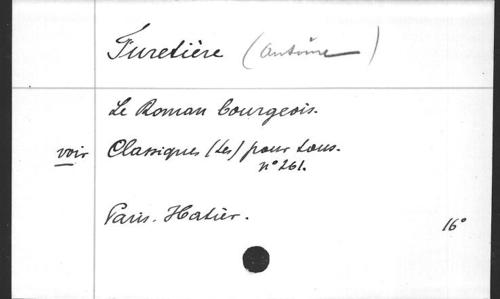 Furetière (Antoine)
Le Roman bourgeois.
voir Classiques (Les) pour tous.
n° 261.
Paris. Hatier. 16°